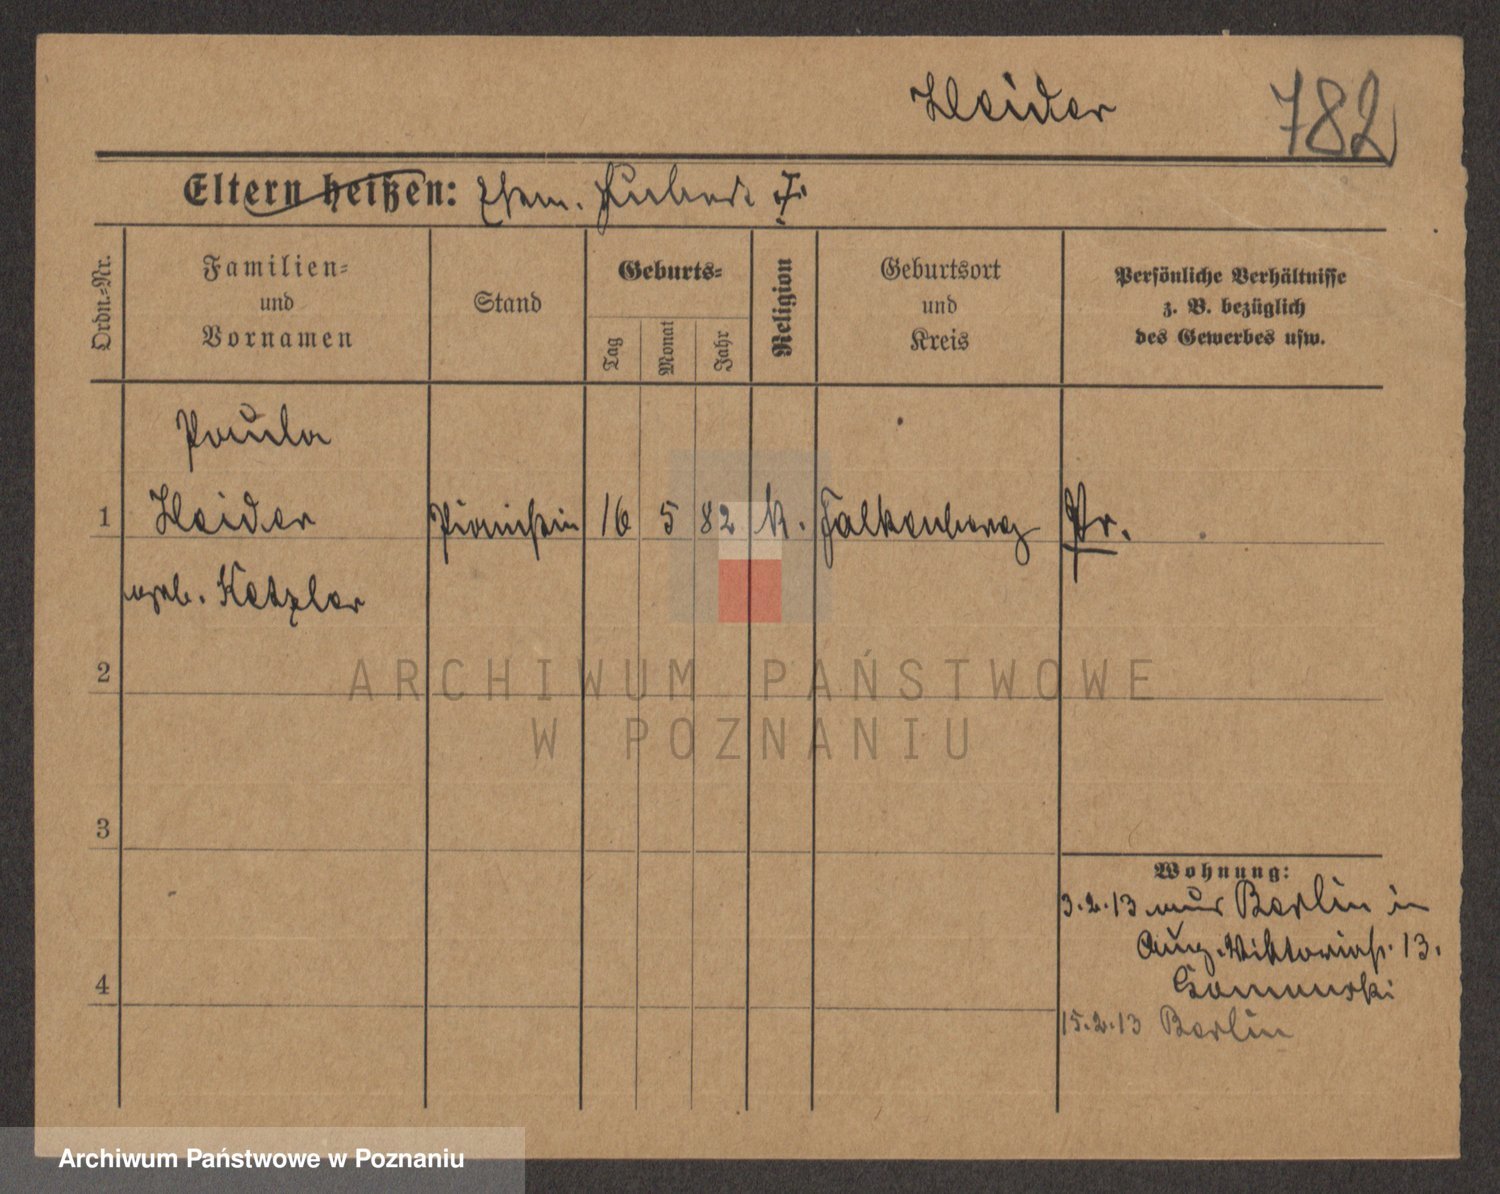 Heider 782
Eltern heißen: Ehem. Hubert †
Ordn.-Nr.
Familien-
und
Vornamen
Stand
Geburts-
Tag
Monat
Jahr
Religion
Geburtsort
und
Kreis
Persönliche Verhältnisse
z. B. bezüglich
des Gewerbes usw.
Paula
1 Heider Pianistin 16 5 82 k. Falkenberg Pr.
geb. Ketzler
2
3
4
Wohnung:
3.2.13 aus Berlin in
Aug. Viktoriastr. 13.
15.2.13 Berlin
ARCHIWUM PAŃSTWOWE
W POZNANIU
Archiwum Państwowe w Poznaniu